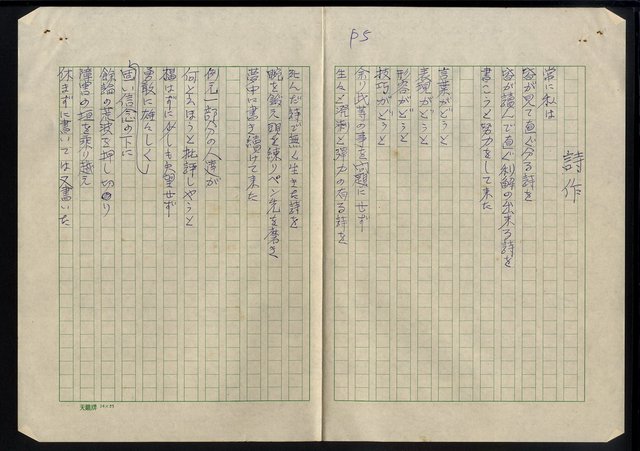 P5
詩作
常に私は
皆が見て直ぐ分る詩を
皆が讀んで直ぐ利解の出来る詩を
書こうと努力をして来た
言葉がどうと
表現がどうと
形容がどうと
技巧がどうと
余り此等の事を问題にせず
生々と溌溂と弾力の有る詩を
死んだ詩で無く生きた詩を
腕を鍛え頭を練りペン先を磨き
夢中に書き續けて来た
例え一部分の人達が
何と云はうと批評しやうと
構はずに少しも失望せず
勇敢に雄々しく
固い信念の下に
餘論の荒波を押し切り
障害の垣を乘り越え
休まずに書いては又書いた
天鵝牌 24×25